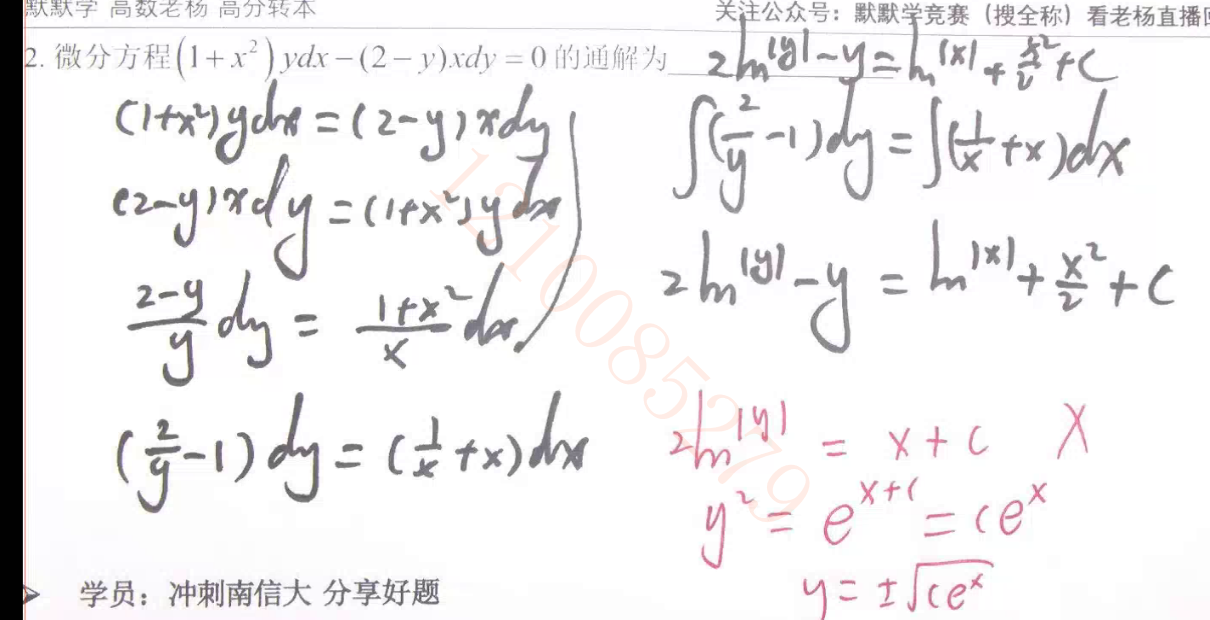 默默学 高数老杨 高分转本
关注公众号：默默学竞赛（搜全称）看老杨直播
2. 微分方程(1+x²)ydx-(2-y)xdy=0的通解为
2ln|y|-y=ln|x|+x²/2+C
(1+x²)ydx=(2-y)xdy
(2-y)xdy=(1+x²)ydx
(2-y)/y dy = (1+x²)/x dx
(2/y-1)dy=(1/x+x)dx
∫(2/y-1)dy=∫(1/x+x)dx
2ln|y|-y=ln|x|+x²/2+C
2ln|y| = x+C X
y²=e^(x+C)=Ce^x
y=±√(Ce^x)
1210085279
学员：冲刺南信大 分享好题